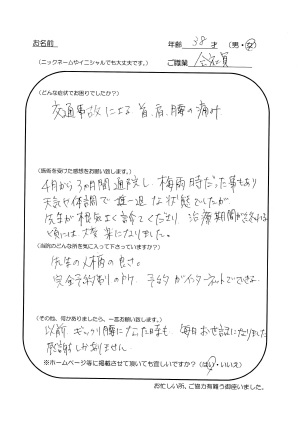 お名前
年齢 38 才 (男・女)
(ニックネームやイニシャルでも大丈夫です。)
ご職業 会社員
(どんな症状でお困りでしたか?)
交通事故による首、肩、腰の痛み
(施術を受けた感想をお願い致します。)
4月から3カ月間通院し、梅雨時だった事もあり
天気や体調で一進一退な状態でしたが
先生が根気よく診てくださり、治療期間が終わる
頃には大夫楽になりました。
(当院のどんな所を気に入って下さっていますか?)
先生の人柄の良さ。
完全予約制の所。予約がインターネットでできる
(その他、何かありましたら、一言お願い致します。)
以前、ギックリ腰になった時も、毎回お世話になりました
感謝しかありません。
※ホームページ等に掲載させて頂いても宜しいですか? (はい・いいえ)
お忙しい所、ご協力有難う御座いました。